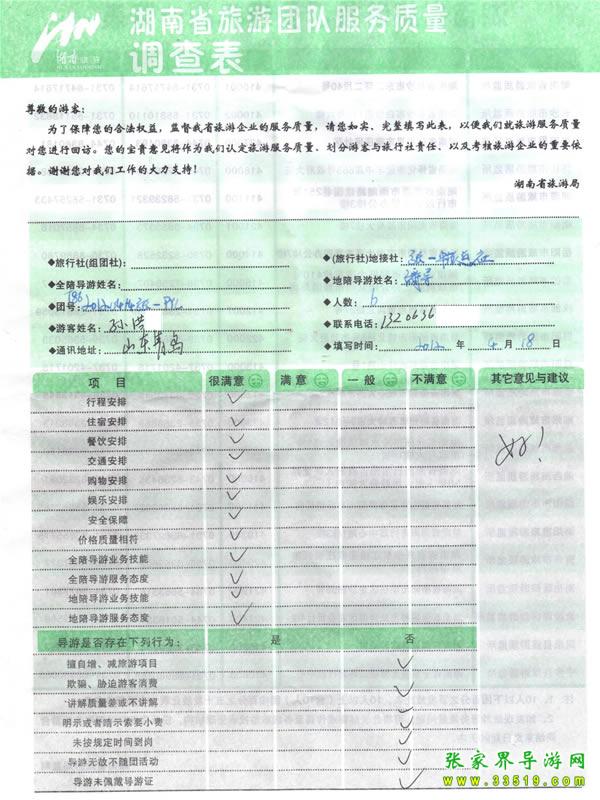 湖南省旅游团队服务质量
调查表
尊敬的游客：
为了保障您的合法权益，监督我省旅游企业的服务质量，请您如实、完整填写此表，以便我们就旅游服务质量
对您进行回访。您的宝贵意见将作为我们认定旅游服务质量、划分游客与旅行社责任、以及考核旅游企业的重要依
据。谢谢您对我们工作的大力支持！
湖南省旅游局
◆旅行社(组团社)：
◆(旅行社)地接社：
◆全陪导游姓名：
◆地陪导游姓名：
◆团号：
◆人数：6
◆游客姓名：孙
◆联系电话：1320636
◆通讯地址：山东青岛
◆填写时间：2012 年 4 月 18 日
项 目 很满意 满意 一般 不满意 其它意见与建议
行程安排
住宿安排
餐饮安排
好！
交通安排
购物安排
娱乐安排
安全保障
价格质量相符
全陪导游业务技能
全陪导游服务态度
地陪导游业务技能
地陪导游服务态度
导游是否存在下列行为： 是 否
擅自增、减旅游项目
欺骗、胁迫游客消费
讲解质量差或不讲解
明示或者暗示索要小费
未按规定时间到岗
导游无故不随团活动
导游未佩戴导游证
张家界导游网
www.33519.com